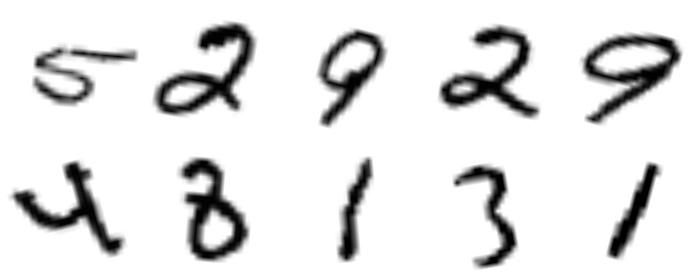 5 2 9 2 9
4 8 1 3 1